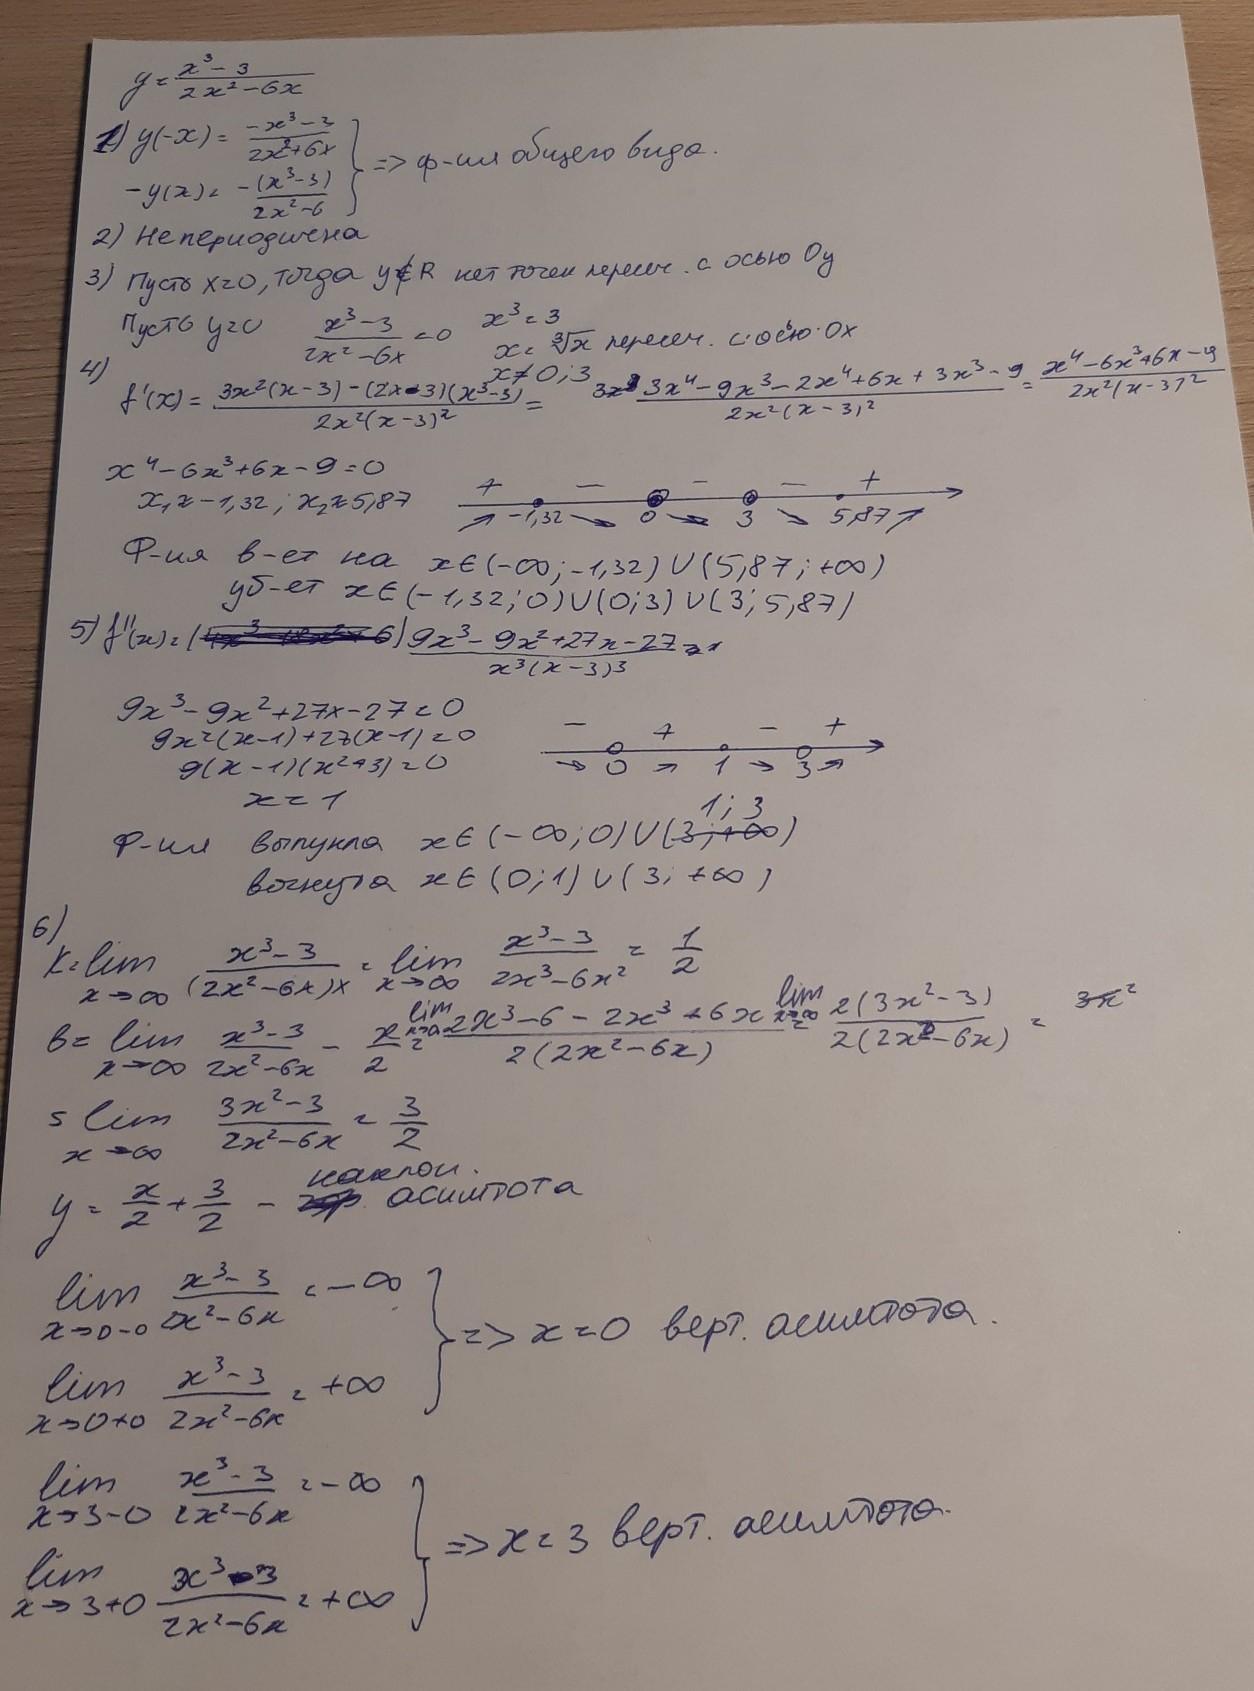 y = (x³ - 3)/(2x² - 6x)
1) y(-x) = (-x³ - 3)/(2x² + 6x)
-y(x) = -(x³-3)/(2x² - 6) } => ф-ия общего вида.
2) Непериодична
3) Пусть x=0, тогда y∉R нет точек пересеч. с осью Oy
Пусть y=0 (x³ - 3)/(2x² - 6x) = 0 x³ = 3
x = ∛x пересеч. с осью Ox
x ≠ 0; 3
4) f'(x) = (3x²(x-3) - (2x-3)(x³-3))/(2x²(x-3)²) = (3x⁴ - 9x³ - 2x⁴ + 6x + 3x³ - 9)/(2x²(x-3)²) = (x⁴ - 6x³ + 6x - 9)/(2x²(x-3)²)
x⁴ - 6x³ + 6x - 9 = 0
x₁ ≈ -1,32 ; x₂ ≈ 5,87
+ - - - +
-1,32 0 3 5,87
Ф-ия в-ет на x∈(-∞; -1,32) ∪ (5,87; +∞)
уб-ет x∈(-1,32; 0) ∪ (0; 3) ∪ (3; 5,87)
5) f''(x) = (9x³ - 9x² + 27x - 27)/(x³(x-3)³) =
9x³ - 9x² + 27x - 27 = 0
9x²(x-1) + 27(x-1) = 0
9(x-1)(x²+3) = 0
x = 1
- + - +
0 1 3
Ф-ия выпукла x∈(-∞; 0) ∪ (1; 3)
вогнута x∈(0; 1) ∪ (3; +∞)
6)
k = lim x→∞ (x³ - 3)/((2x² - 6x)x) = lim x→∞ (x³ - 3)/(2x³ - 6x²) = 1/2
b = lim x→∞ (x³ - 3)/(2x² - 6x) - x/2 = lim x→∞ (2x³ - 6 - 2x³ + 6x)/(2(2x² - 6x)) = lim x→∞ 2(3x² - 3)/(2(2x² - 6x)) = 3x²
= lim x→∞ (3x² - 3)/(2x² - 6x) = 3/2
y = x/2 + 3/2 - наклон. асимптота
lim x→0-0 (x³ - 3)/(2x² - 6x) = -∞
lim x→0+0 (x³ - 3)/(2x² - 6x) = +∞ } => x = 0 верт. асимптота.
lim x→3-0 (x³ - 3)/(2x² - 6x) = -∞
lim x→3+0 (x³ - 3)/(2x² - 6x) = +∞ } => x = 3 верт. асимптота.